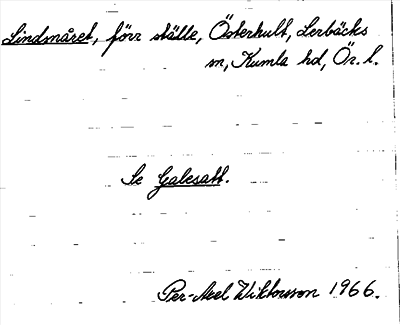 Lindsnåret, förr ställe, Österhult, Lerbäcks
sn, Kumla hd, Ör. l.
Se Galesatt.
Per-Axel Wiktorsson 1966.